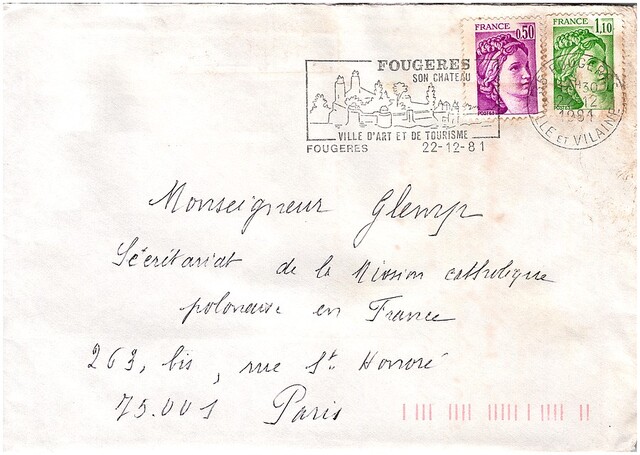 FRANCE 0,50
FRANCE 1,10
FOUGERES
SON CHATEAU
VILLE D'ART ET DE TOURISME
FOUGERES 22-12-81
FOUGERES
30
12
1981
ILLE ET VILAINE
Monseigneur Glemp
Sécrétariat de la Mission catholique
polonaise en France
263, bis, rue St. Honoré
75.001 Paris